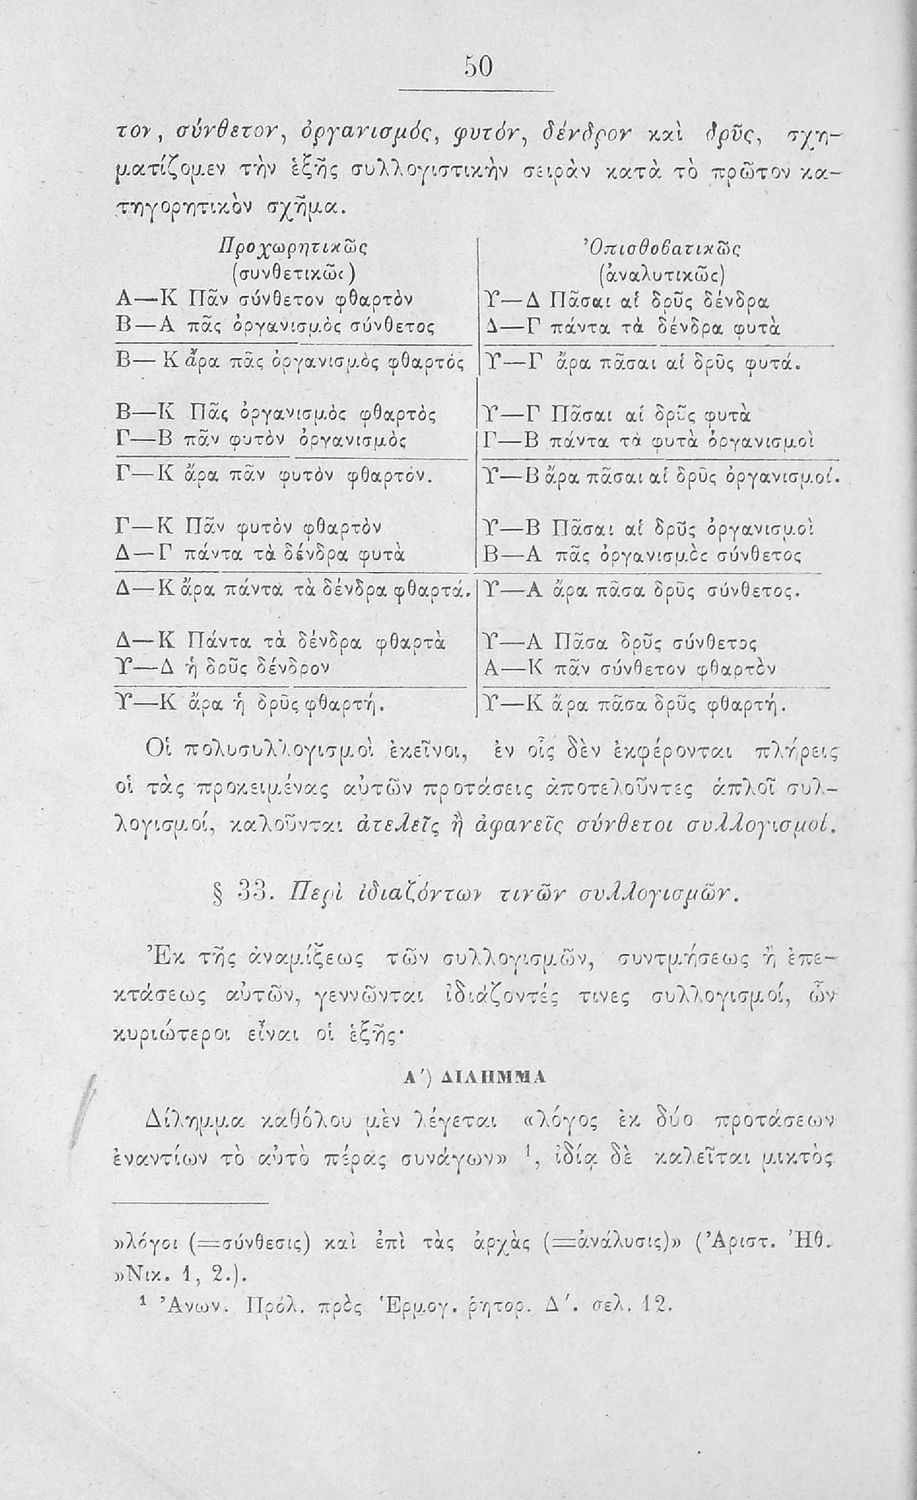 50
τον, σύνθετον, ὀργανισμός, φυτόν, δένδρον καὶ δρῦς, σχη-
ματίζομεν τὴν ἑξῆς συλλογιστικὴν σειρὰν κατὰ τὸ πρῶτον κα-
τηγορητικὸν σχῆμα.
Προχωρητικῶς
(συνθετικῶς)
Α—Κ Πᾶν σύνθετον φθαρτὸν
Β—Α πᾶς ὀργανισμὸς σύνθετος
Β—Κ ἄρα πᾶς ὀργανισμὸς φθαρτός
Β—Κ Πᾶς ὀργανισμὸς φθαρτὸς
Γ—Β πᾶν φυτὸν ὀργανισμὸς
Γ—Κ ἄρα πᾶν φυτὸν φθαρτόν.
Γ—Κ Πᾶν φυτὸν φθαρτὸν
Δ—Γ πάντα τὰ δένδρα φυτὰ
Δ—Κ ἄρα πάντα τὰ δένδρα φθαρτά.
Δ—Κ Πάντα τὰ δένδρα φθαρτὰ
Υ—Δ ἡ δρῦς δένδρον
Υ—Κ ἄρα ἡ δρῦς φθαρτή.
Ὀπισθοβατικῶς
(ἀναλυτικῶς)
Υ—Δ Πᾶσαι αἱ δρῦς δένδρα
Δ—Γ πάντα τὰ δένδρα φυτὰ
Υ—Γ ἄρα πᾶσαι αἱ δρῦς φυτά.
Υ—Γ Πᾶσαι αἱ δρῦς φυτὰ
Γ—Β πάντα τὰ φυτὰ ὀργανισμοὶ
Υ—Β ἄρα πᾶσαι αἱ δρῦς ὀργανισμοί.
Υ—Β Πᾶσαι αἱ δρῦς ὀργανισμοὶ
Β—Α πᾶς ὀργανισμὸς σύνθετος
Υ—Α ἄρα πᾶσα δρῦς σύνθετος.
Υ—Α Πᾶσα δρῦς σύνθετος
Α—Κ πᾶν σύνθετον φθαρτὸν
Υ—Κ ἄρα πᾶσα δρῦς φθαρτή.
Οἱ πολυσυλλογισμοὶ ἐκεῖνοι, ἐν οἷς δὲν ἐκφέρονται πλήρεις
οἱ τὰς προκειμένας αὐτῶν προτάσεις ἀποτελοῦντες ἁπλοῖ συλ-
λογισμοί, καλοῦνται ἀτελεῖς ἢ ἀφανεῖς σύνθετοι συλλογισμοί.
§ 33. Περὶ ἰδιαζόντων τινῶν συλλογισμῶν.
Ἐκ τῆς ἀναμίξεως τῶν συλλογισμῶν, συντμήσεως ἢ ἐπε-
κτάσεως αὐτῶν, γεννῶνται ἰδιάζοντές τινες συλλογισμοί, ὧν
κυριώτεροι εἶναι οἱ ἑξῆς·
Α΄) ΔΙΛΗΜΜΑ
Δίλημμα καθόλου μὲν λέγεται «λόγος ἐκ δύο προτάσεων
ἐναντίων τὸ αὐτὸ πέρας συνάγων» ¹, ἰδίᾳ δὲ καλεῖται μικτὸς
»λόγοι (=σύνθεσις) καὶ ἐπὶ τὰς ἀρχὰς (=ἀνάλυσις)» (Ἀριστ. Ἠθ.
»Νικ. 1, 2.).
¹ Ἀνων. Πρόλ. πρὸς Ἑρμογ. ῥητορ. Δ΄. σελ. 12.